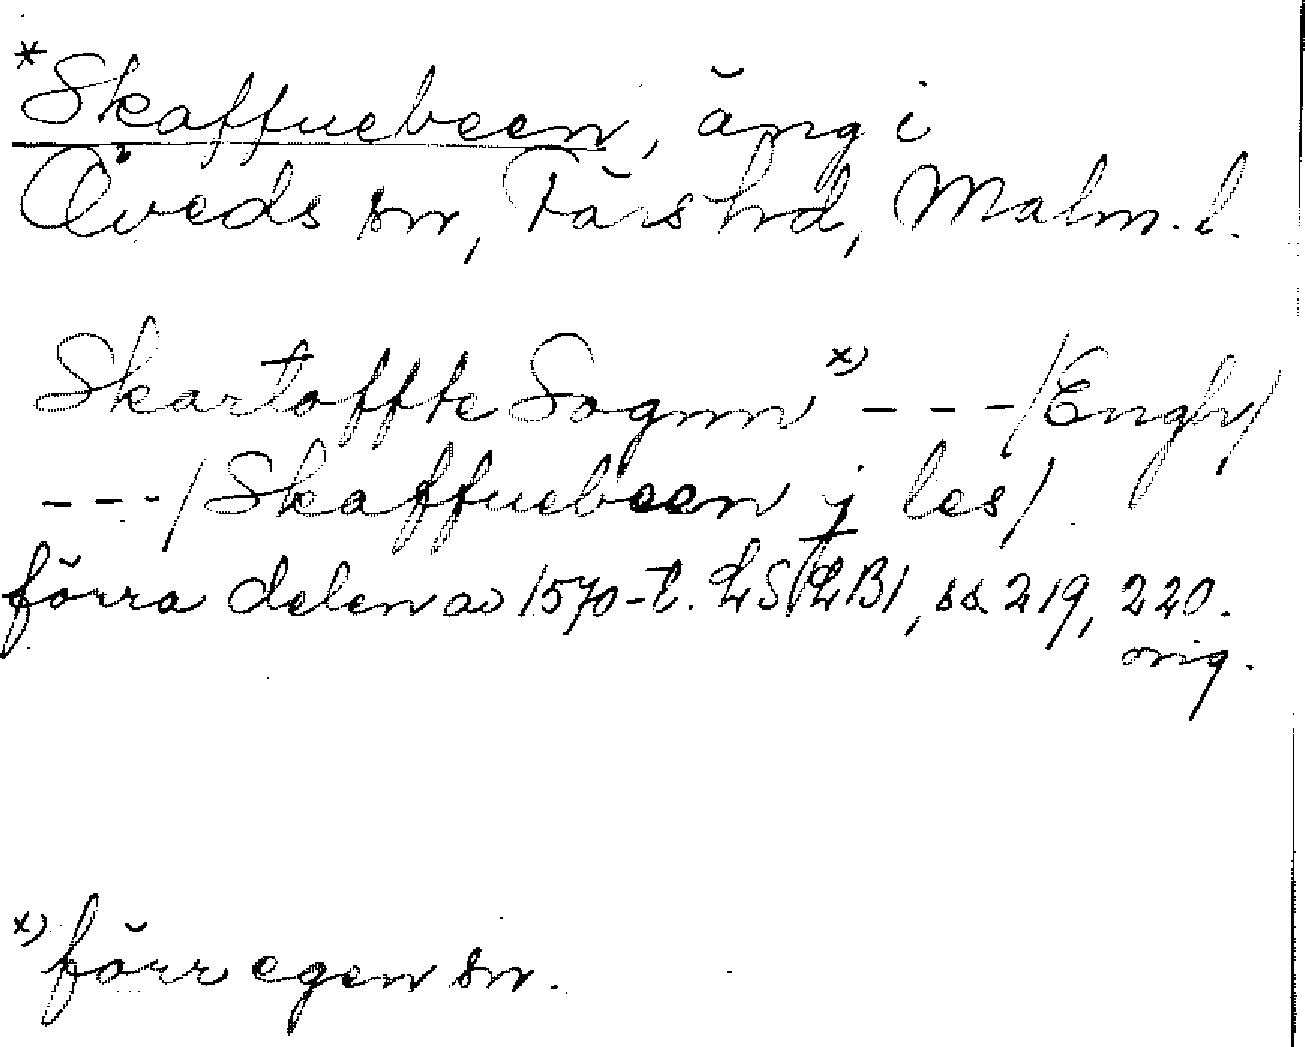 *Skaffuebeen, äng i
Öveds sn, Färs hd, Malm. l.
Skartoffte Sognn x) - - - /Engh/
- - - / Skaffuebeen j les /
förra delen av 1570-t. LSLB1, ss. 219, 220.
orig.
x) förr egen sn.